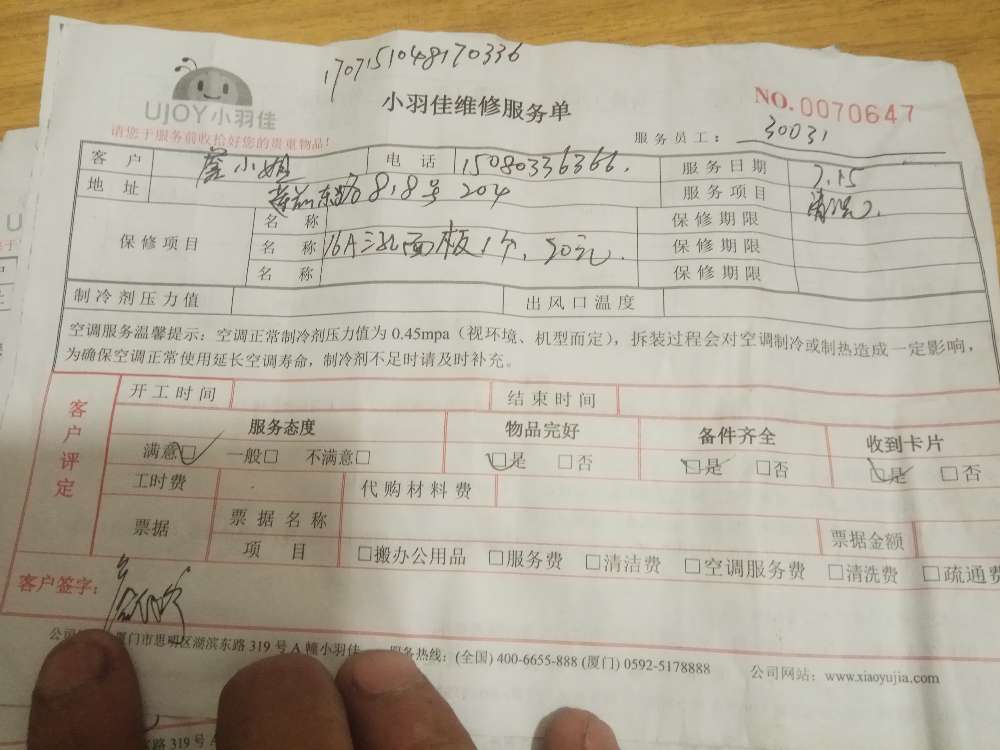 1707151048170336
UJOY小羽佳
小羽佳维修服务单
NO.0070647
请您于服务前收拾好您的贵重物品!
服务员工: 30031
客户 小姐 电话 15080336366. 服务日期 7.15
地址 莲前东路818号204 服务项目 清洗
保修项目
名称 保修期限
名称 16A三孔面板1个, 50元. 保修期限
名称 保修期限
制冷剂压力值 出风口温度
空调服务温馨提示: 空调正常制冷剂压力值为 0.45mpa (视环境、机型而定), 拆装过程会对空调制冷或制热造成一定影响,
为确保空调正常使用延长空调寿命, 制冷剂不足时请及时补充。
客户评定
开工时间 结束时间
服务态度 物品完好 备件齐全 收到卡片
满意□ 一般□ 不满意□ □是 □否 □是 □否 □是 □否
工时费 代购材料费
票据 票据名称 票据金额
项目 □搬办公用品 □服务费 □清洁费 □空调服务费 □清洗费 □疏通费
客户签字:
公司 厦门市思明区湖滨东路 319 号 A 幢小羽佳 服务热线: (全国) 400-6655-888 (厦门) 0592-5178888 公司网站: www.xiaoyujia.com
东路 319 号